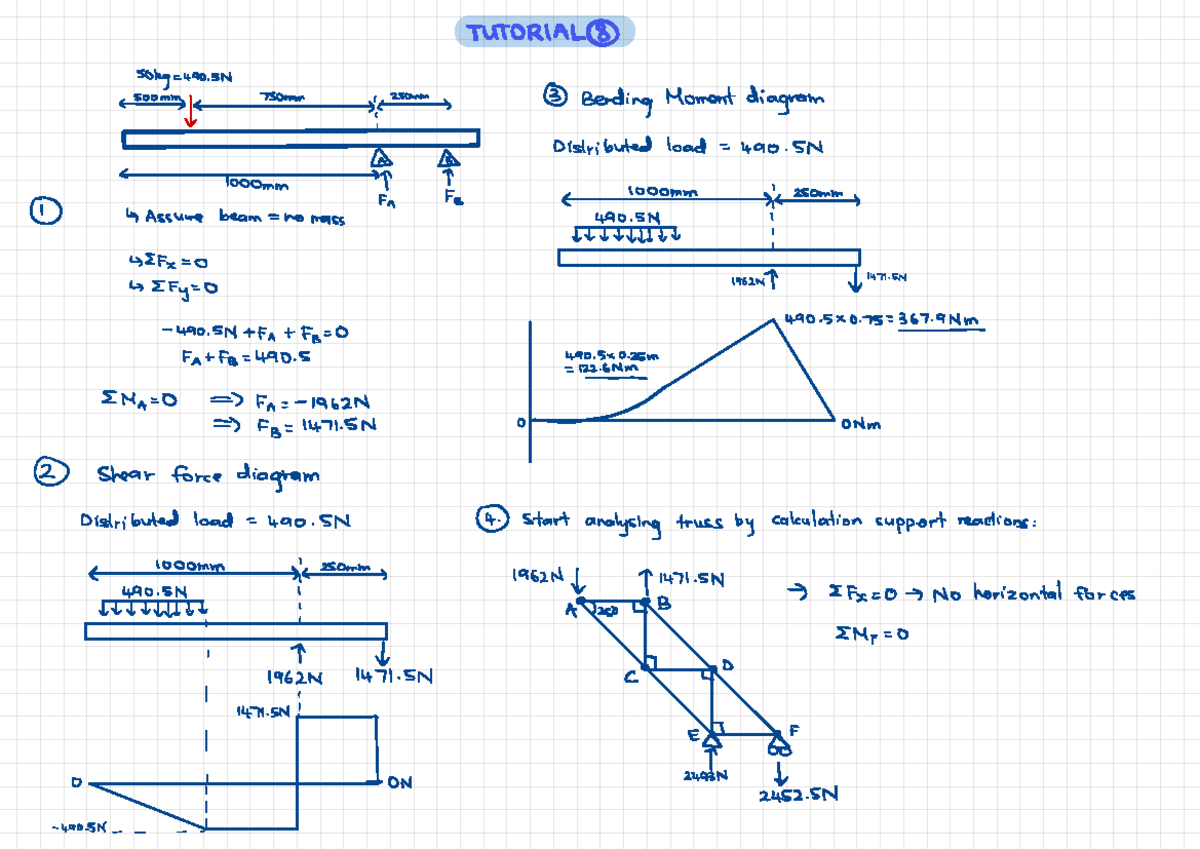 TUTORIAL 8
50kg = 490.5N
500mm 750mm 250mm
1000mm
A
FA FB
① ↳ Assure beam = no mass
↳ ΣFx = 0
↳ ΣFy = 0
-490.5N + FA + FB = 0
FA + FB = 490.5
ΣMA = 0 ⟹ FA = -1962N
⟹ FB = 1471.5N
② Shear force diagram
Distributed load = 490.5N
1000mm 250mm
490.5N
1962N 1471.5N
1471.5N
0 0N
-490.5N
③ Bending Moment diagram
Distributed load = 490.5N
1000mm 250mm
490.5N
1962N 1471.5N
490.5 x 0.75 = 367.9Nm
490.5 x 0.25m
= 122.6Nm
0 0Nm
④. Start analysing truss by calculation support reactions:
1962N 1471.5N
A B
C D
E F
2452.5N
→ ΣFx = 0 → No horizontal forces
ΣMF = 0